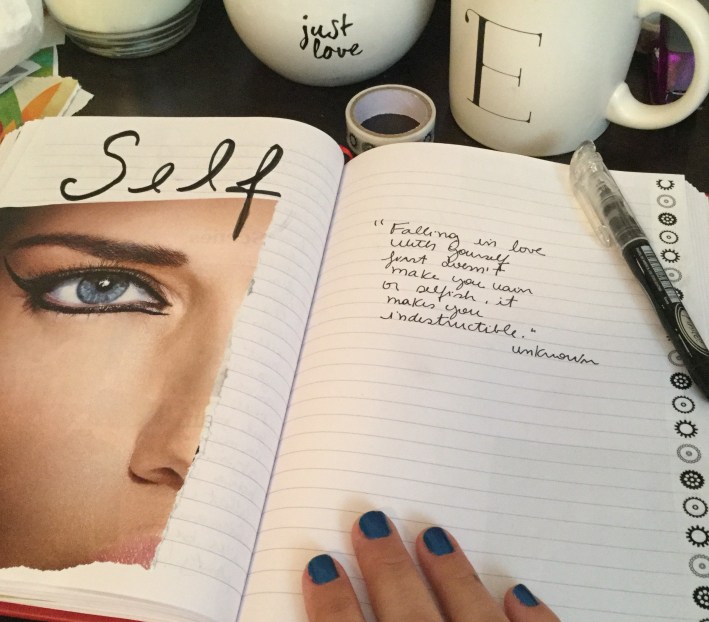 just
love
E
Self
"Falling in love
with yourself
first doesn't
make you vain
or selfish, it
makes you
indestructible."
unknown